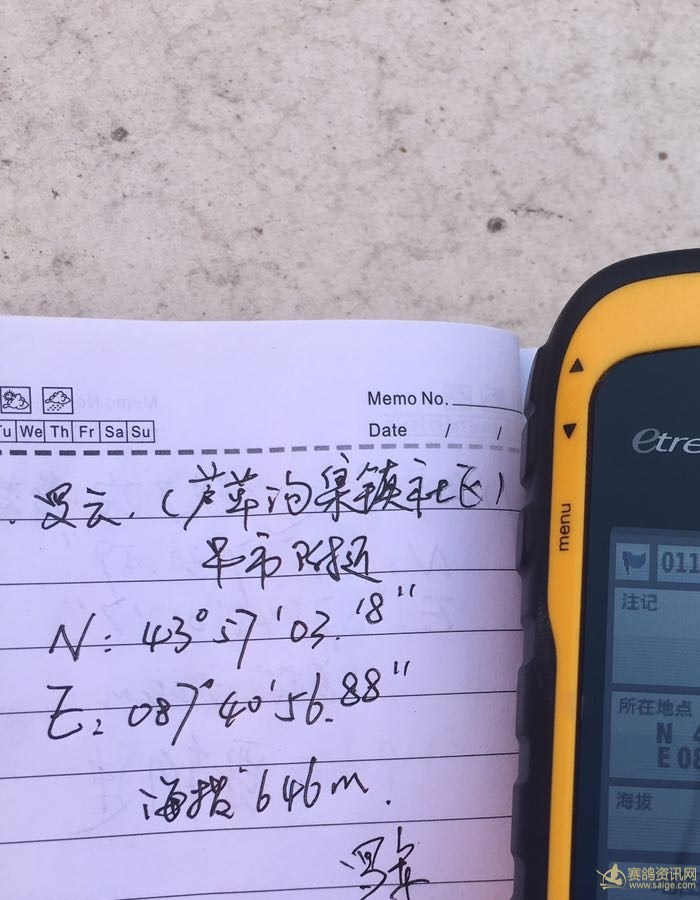 Memo No.
Tu We Th Fr Sa Su
Date / /
罗云.(芦草沟集镇社区)
早市附近
N: 43°57'03.18"
E: 087°40'56.88"
海拔 646m.
etre
menu
011
注记
所在地点
N 4
E 08
海拔
赛鸽资讯网
www.saige.com